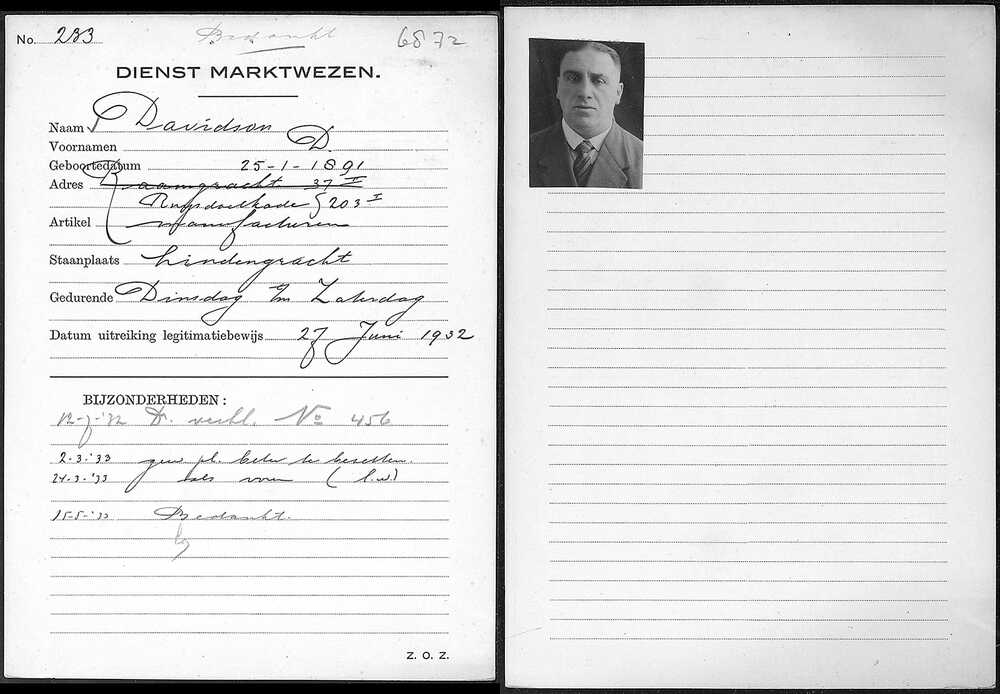 No. 283 Bedankt 6872
DIENST MARKTWEZEN.
Naam Davidson
Voornamen D.
Geboortedatum 25-1-1891
Adres Raamgracht 37 I
Ruysdaelkade 203 I
Artikel manufacturen
Staanplaats Lindengracht
Gedurende Dinsdag t/m Zaterdag
Datum uitreiking legitimatiebewijs 27 Juni 1932
BIJZONDERHEDEN:
12-7-'32 D. No 456
2-3-'33 gew. pl. beter te bezetten.
24-3-'33 als voren
15-5-'33 Bedankt.
Z. O. Z.